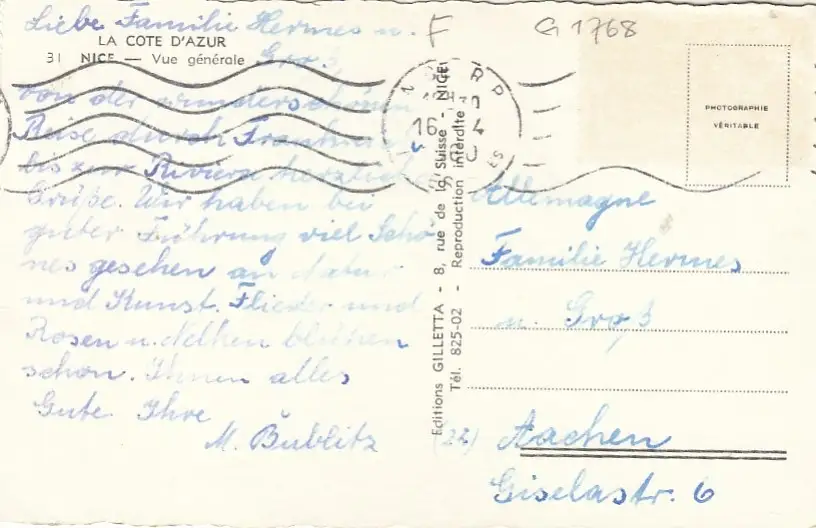 Liebe Familie Hermes u.
LA COTE D'AZUR
31 NICE — Vue générale
Groß
von der wunderschönen
Reise durch Frankreich
bis zur Riviera herzliche
Grüße. Wir haben bei
guter Führung viel Schö
nes gesehen an Natur
und Kunst. Flieder und
Rosen u. Nelken blühen
schon. Ihnen alles
Gute Ihre
M. Bublitz
F
G 1768
16 4
Editions GILLETTA - 8, rue de la Suisse - NICE
Tél. 825-02 - Reproduction interdite
PHOTOGRAPHIE
VÉRITABLE
Allemagne
Familie Hermes
u. Groß
(22) Aachen
Giselastr. 6